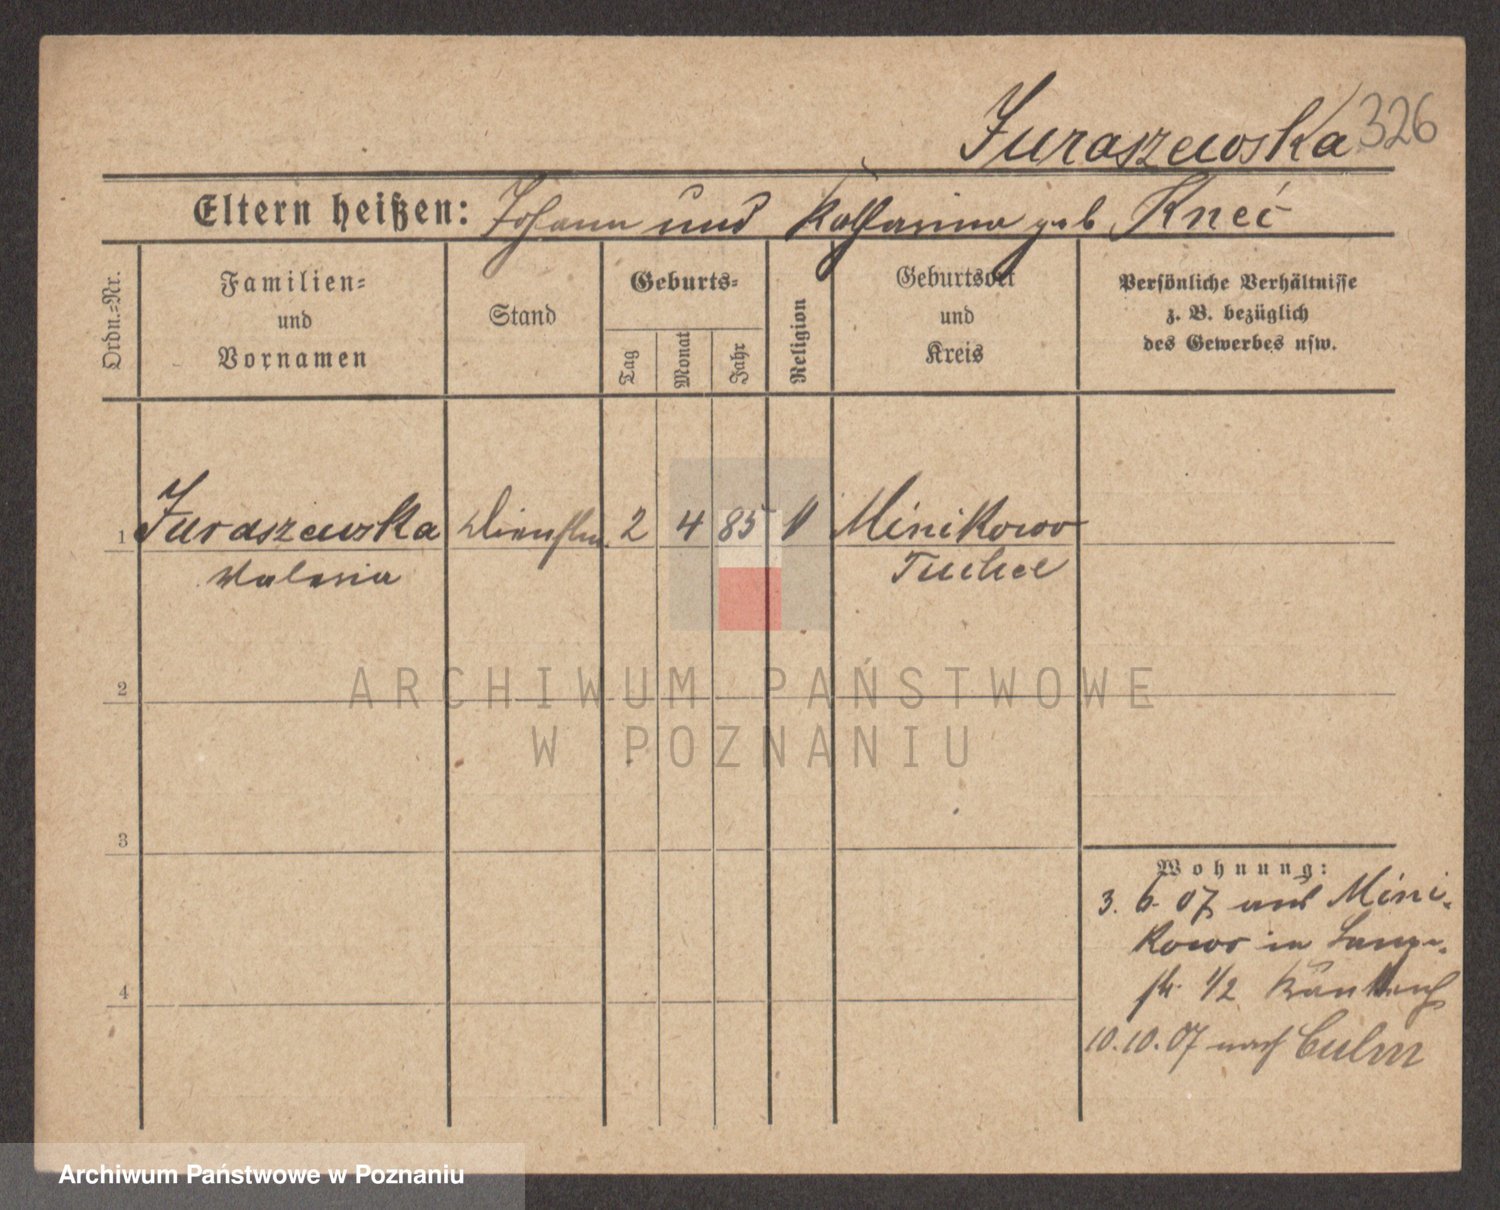 Juraszewska 326
Eltern heißen: Johann und Katharina geb Kneć
Ordn.=Nr.
Familien=
und
Vornamen
Stand
Geburts=
Tag
Monat
Jahr
Religion
Geburtsort
und
Kreis
Persönliche Verhältnisse
z. B. bezüglich
des Gewerbes usw.
1 Juraszewska Dienstm. 2 4 85 Minikowo
Waleria Tuchel
2
ARCHIWUM PAŃSTWOWE
W POZNANIU
3
Wohnung:
3. 6. 07 aus Mini-
kowo in
str. 1/2
4
10.10.07 nach Culm
Archiwum Państwowe w Poznaniu